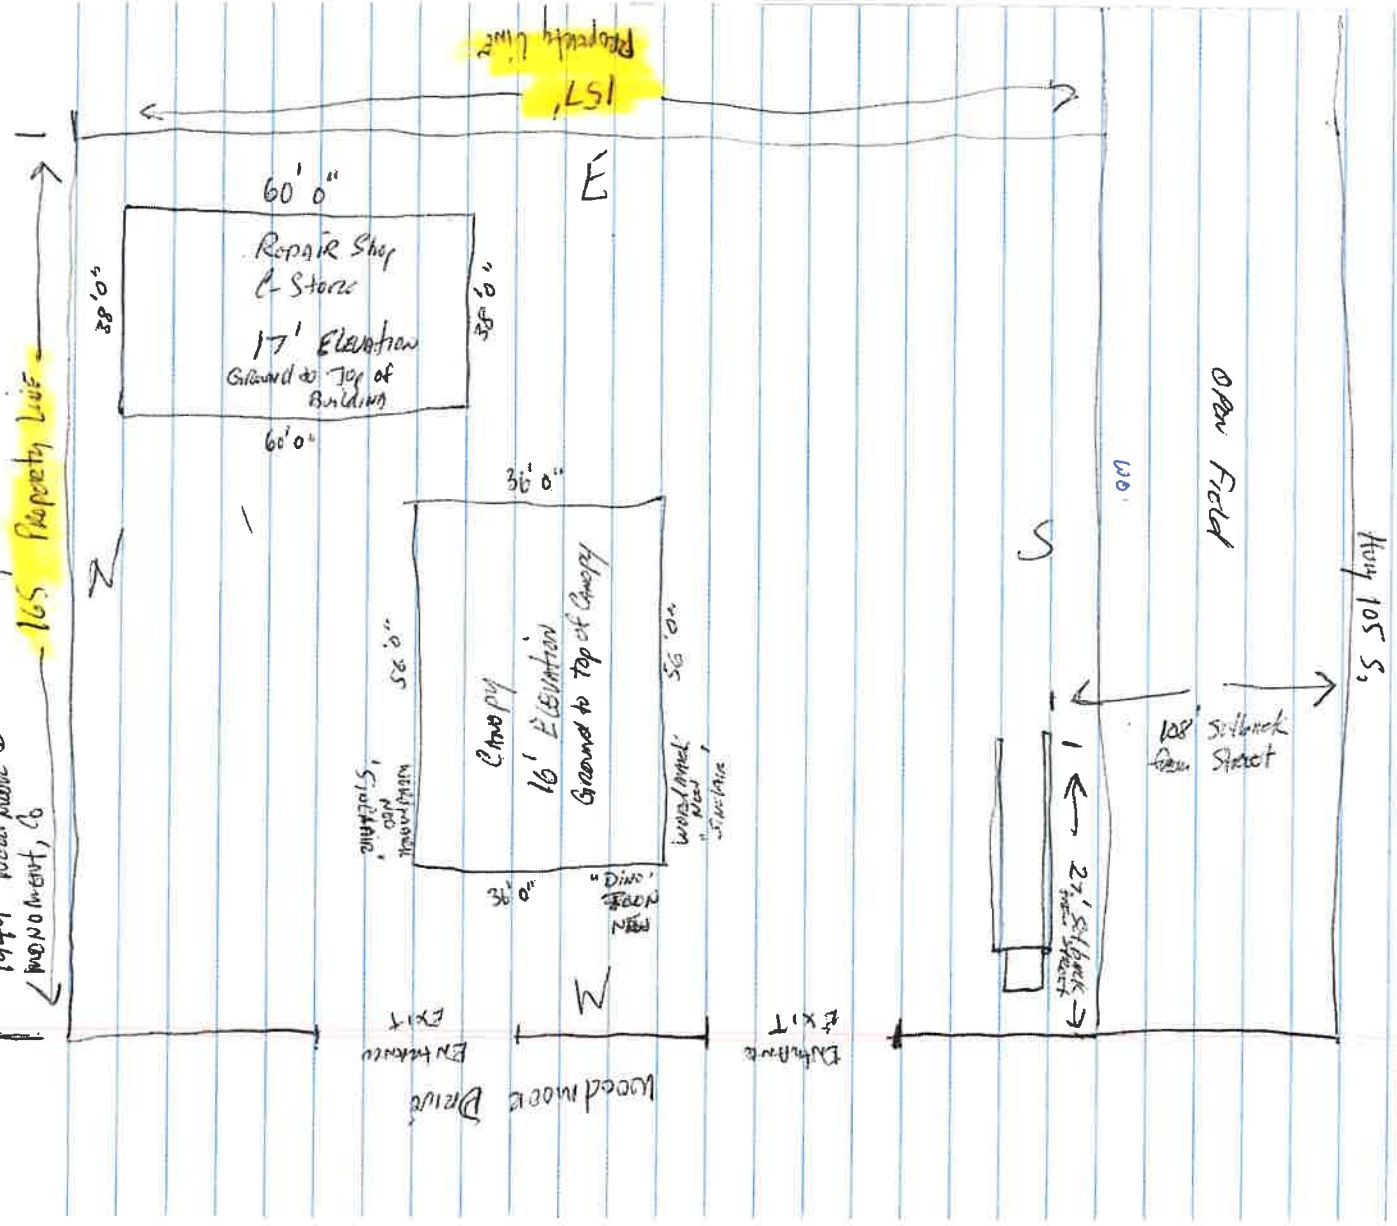 Property Line
157'
E
60' 0"
38' 0"
Repair Shop
C-Store
17' Elevation
Ground to Top of
Building
38' 0"
60' 0"
165' Property Line
N
Monument, Co
36' 0"
56' 0"
Canopy
16' Elevation
Ground to top of Canopy
56' 0"
Wordmark
Neo
"Sinclair"
Wordmark
Neo
"Sinclair"
36' 0"
"Dino"
S
Open Field
Hwy 105 S.
108' Setback
from Street
27' Setback
from Street
W
Exit
Entrance
Exit
Entrance
Woodmoor Drive